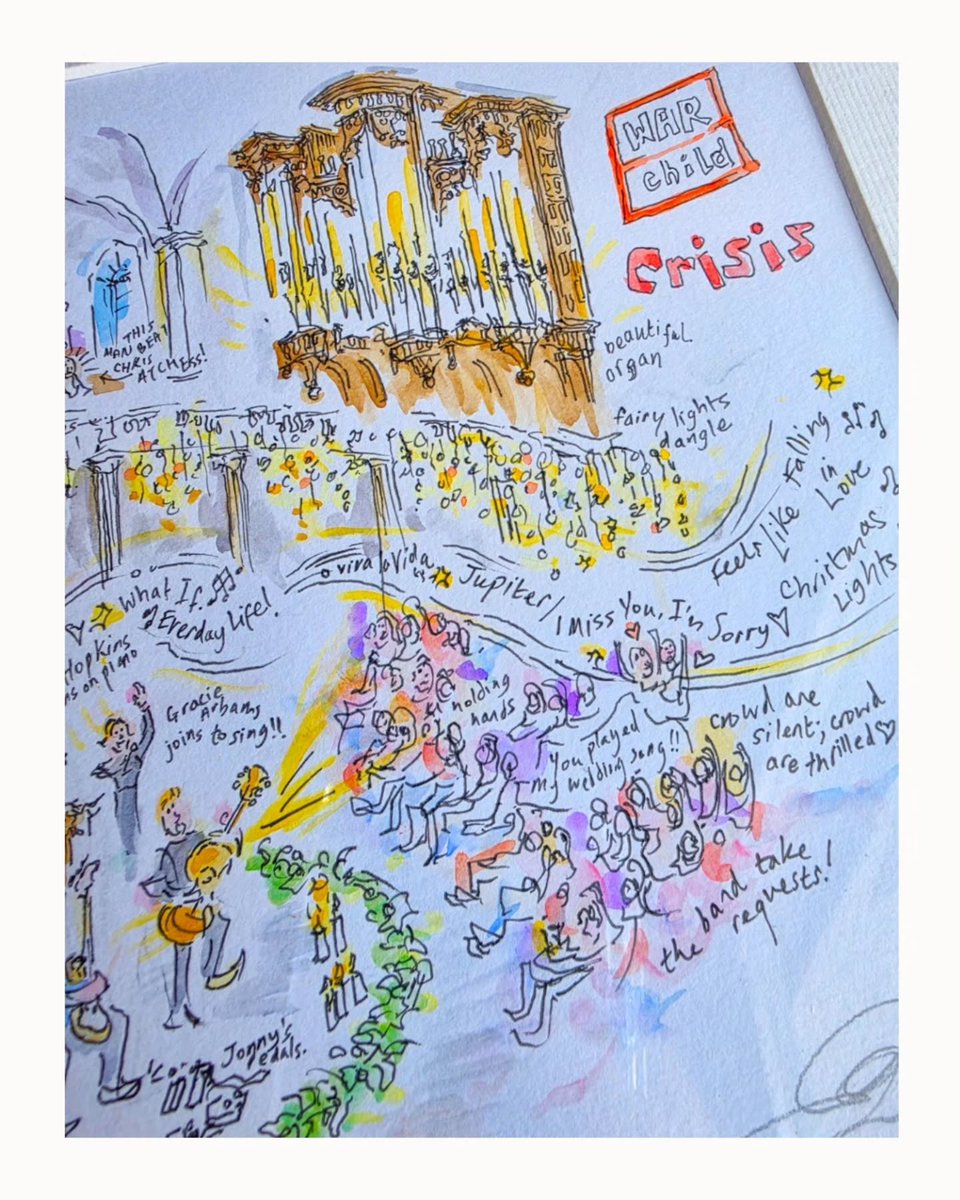 WAR
child
Crisis
beautiful
organ
THIS
MAN BEAT
CHRIS
AT CHESS!
fairy lights
dangle
Feels Like Falling
in
Love
Christmas
Lights
What If
Everday Life!
viva la Vida
Jupiter/
I Miss You, I'm
Sorry
Hopkins
on piano
Gracie
Arbams
joins to sing!!
holding
hands
You played
my wedding song!!
crowd are
silent; crowd
are thrilled
the band take
requests!
Jonny's